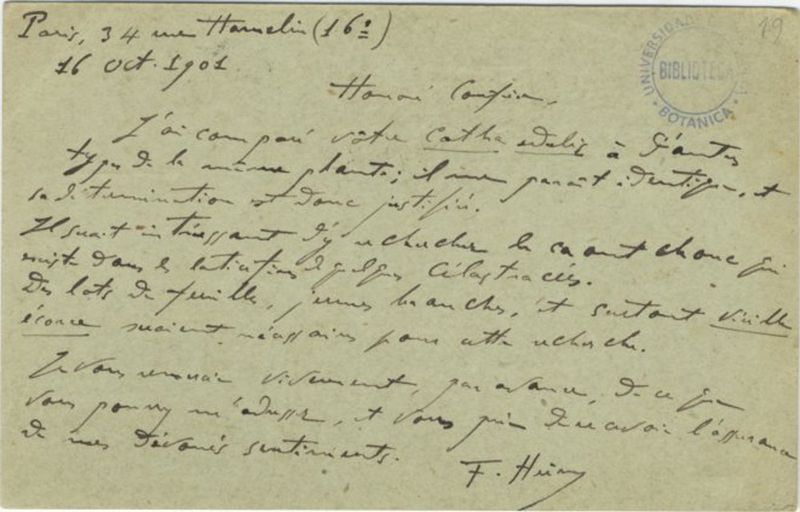 Paris, 34 rue Hamelin (16e)
16 Oct. 1901
Honoré Confrère,
J'ai comparé vôtre Catha edulis à d'autres
types de la même plante; il me parait identique, et
sa détermination est donc justifiée.
Il serait intéressant d'y rechercher le caoutchouc qui
existe dans les laticifères de quelques Célastracées.
Des lots de feuilles, jeunes branches, et surtout vieille
écorce seraient nécessaires pour cette recherche.
Je vous remercie vivement, par avance, de ce que
vous pourrez m'adresser, et vous prie de recevoir l'assurance
de mes dévoués sentiments.
F.
UNIVERSIDADE
BIBLIOTECA
BOTANICA
19